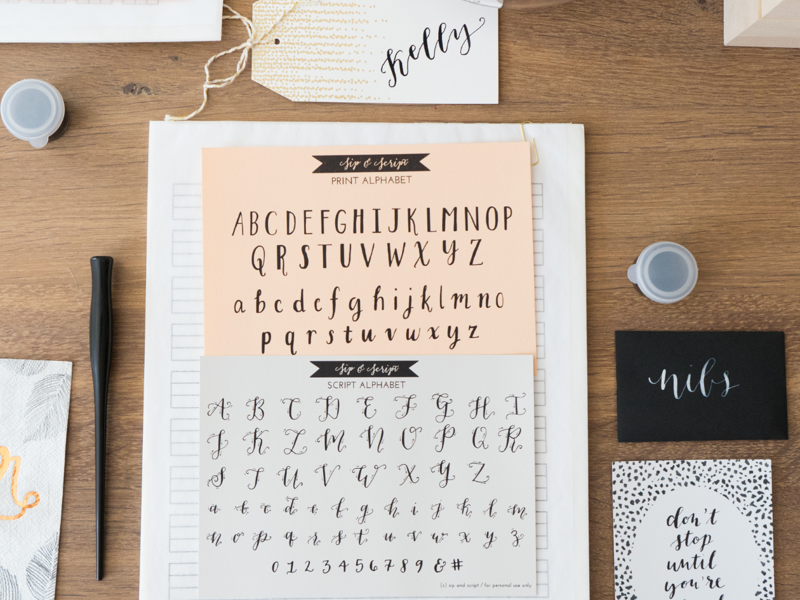 Kelly
Sip & Script
PRINT ALPHABET
ABCDEFGHIJKLMNOP
QRSTUVWXYZ
abcdefghijklmno
pqrstuvwxyz
Sip & Script
SCRIPT ALPHABET
A B C D E F G H I
J K L M N O P Q R
S T U V W X Y Z
a b c d e f g h i j k l m
n o p q r s t u v w x y z
0 1 2 3 4 5 6 7 8 9 & #
(c) sip and script / for personal use only
nibs
don't
stop
until
you're